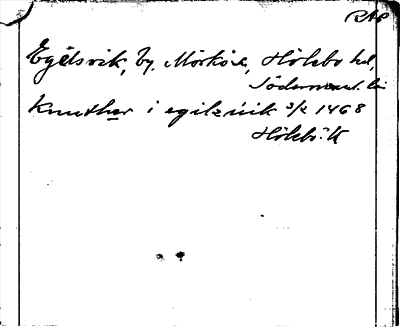 RAP
Egelsvik, by, Mörkö sn, Hölebo hd,
Södermanl. län
Knuthær i egilzuik 3/2 1468
Hölebo: K